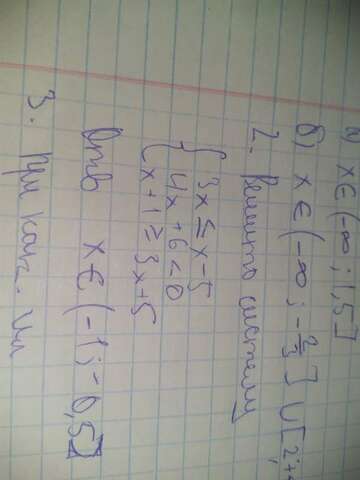 а) x ∈ (-∞; 1,5]
б) x ∈ (-∞; -2/3] ∪ [2,
2. Решить систему
{ 3x ≤ x - 5
4x + 6 < 0
x + 1 ≥ 3x + 5
Отв x ∈ (-1; -0,5]
3. При как.